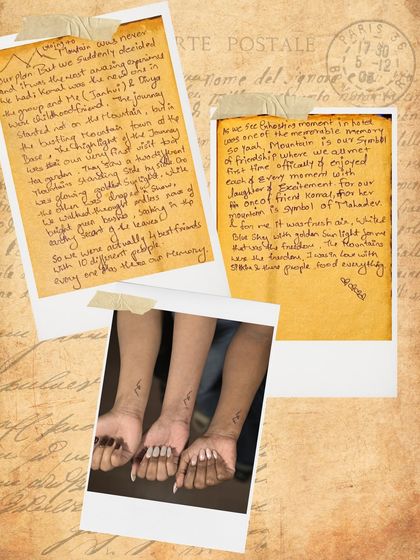 CARTE POSTALE
PARIS 36
17 30
5 12
nome del
Mountain was never
Our plan But we Suddenly decided
and it was the most amazing experience
we had! Komal was the new one in
the group and Me (Janhvi) & Divya
were childhood friend. The journey
started not on the Mountain, but in
the bustling Mountain town at the
Base. The highlight of the Journey
was our very first visit to
tea garden. saw a two different
Mountains standing side by side one
was glowing golden sunlight, while
the other was draped in shadow
we walked through endless rows of
bright green bushes, soaking in the
earthy scent of the leaves
So we were actually best friends
with 10 different people.
every one has there our Memory.
As we see Ghosting moment in hotel
was one of the memorable memory
so yeah, Mountain is our Symbol
of friendship where we all met
first time officially & enjoyed
each & every moment with
laughter & Excitement. For our
one of friend Komal, for her
mountain is symbol of Mahadev.
& for me it was fresh air, White &
Blue Sky with golden Sun light for me
that was the freedom. The Mountains
were the freedom, I was in love with
& there people food everything